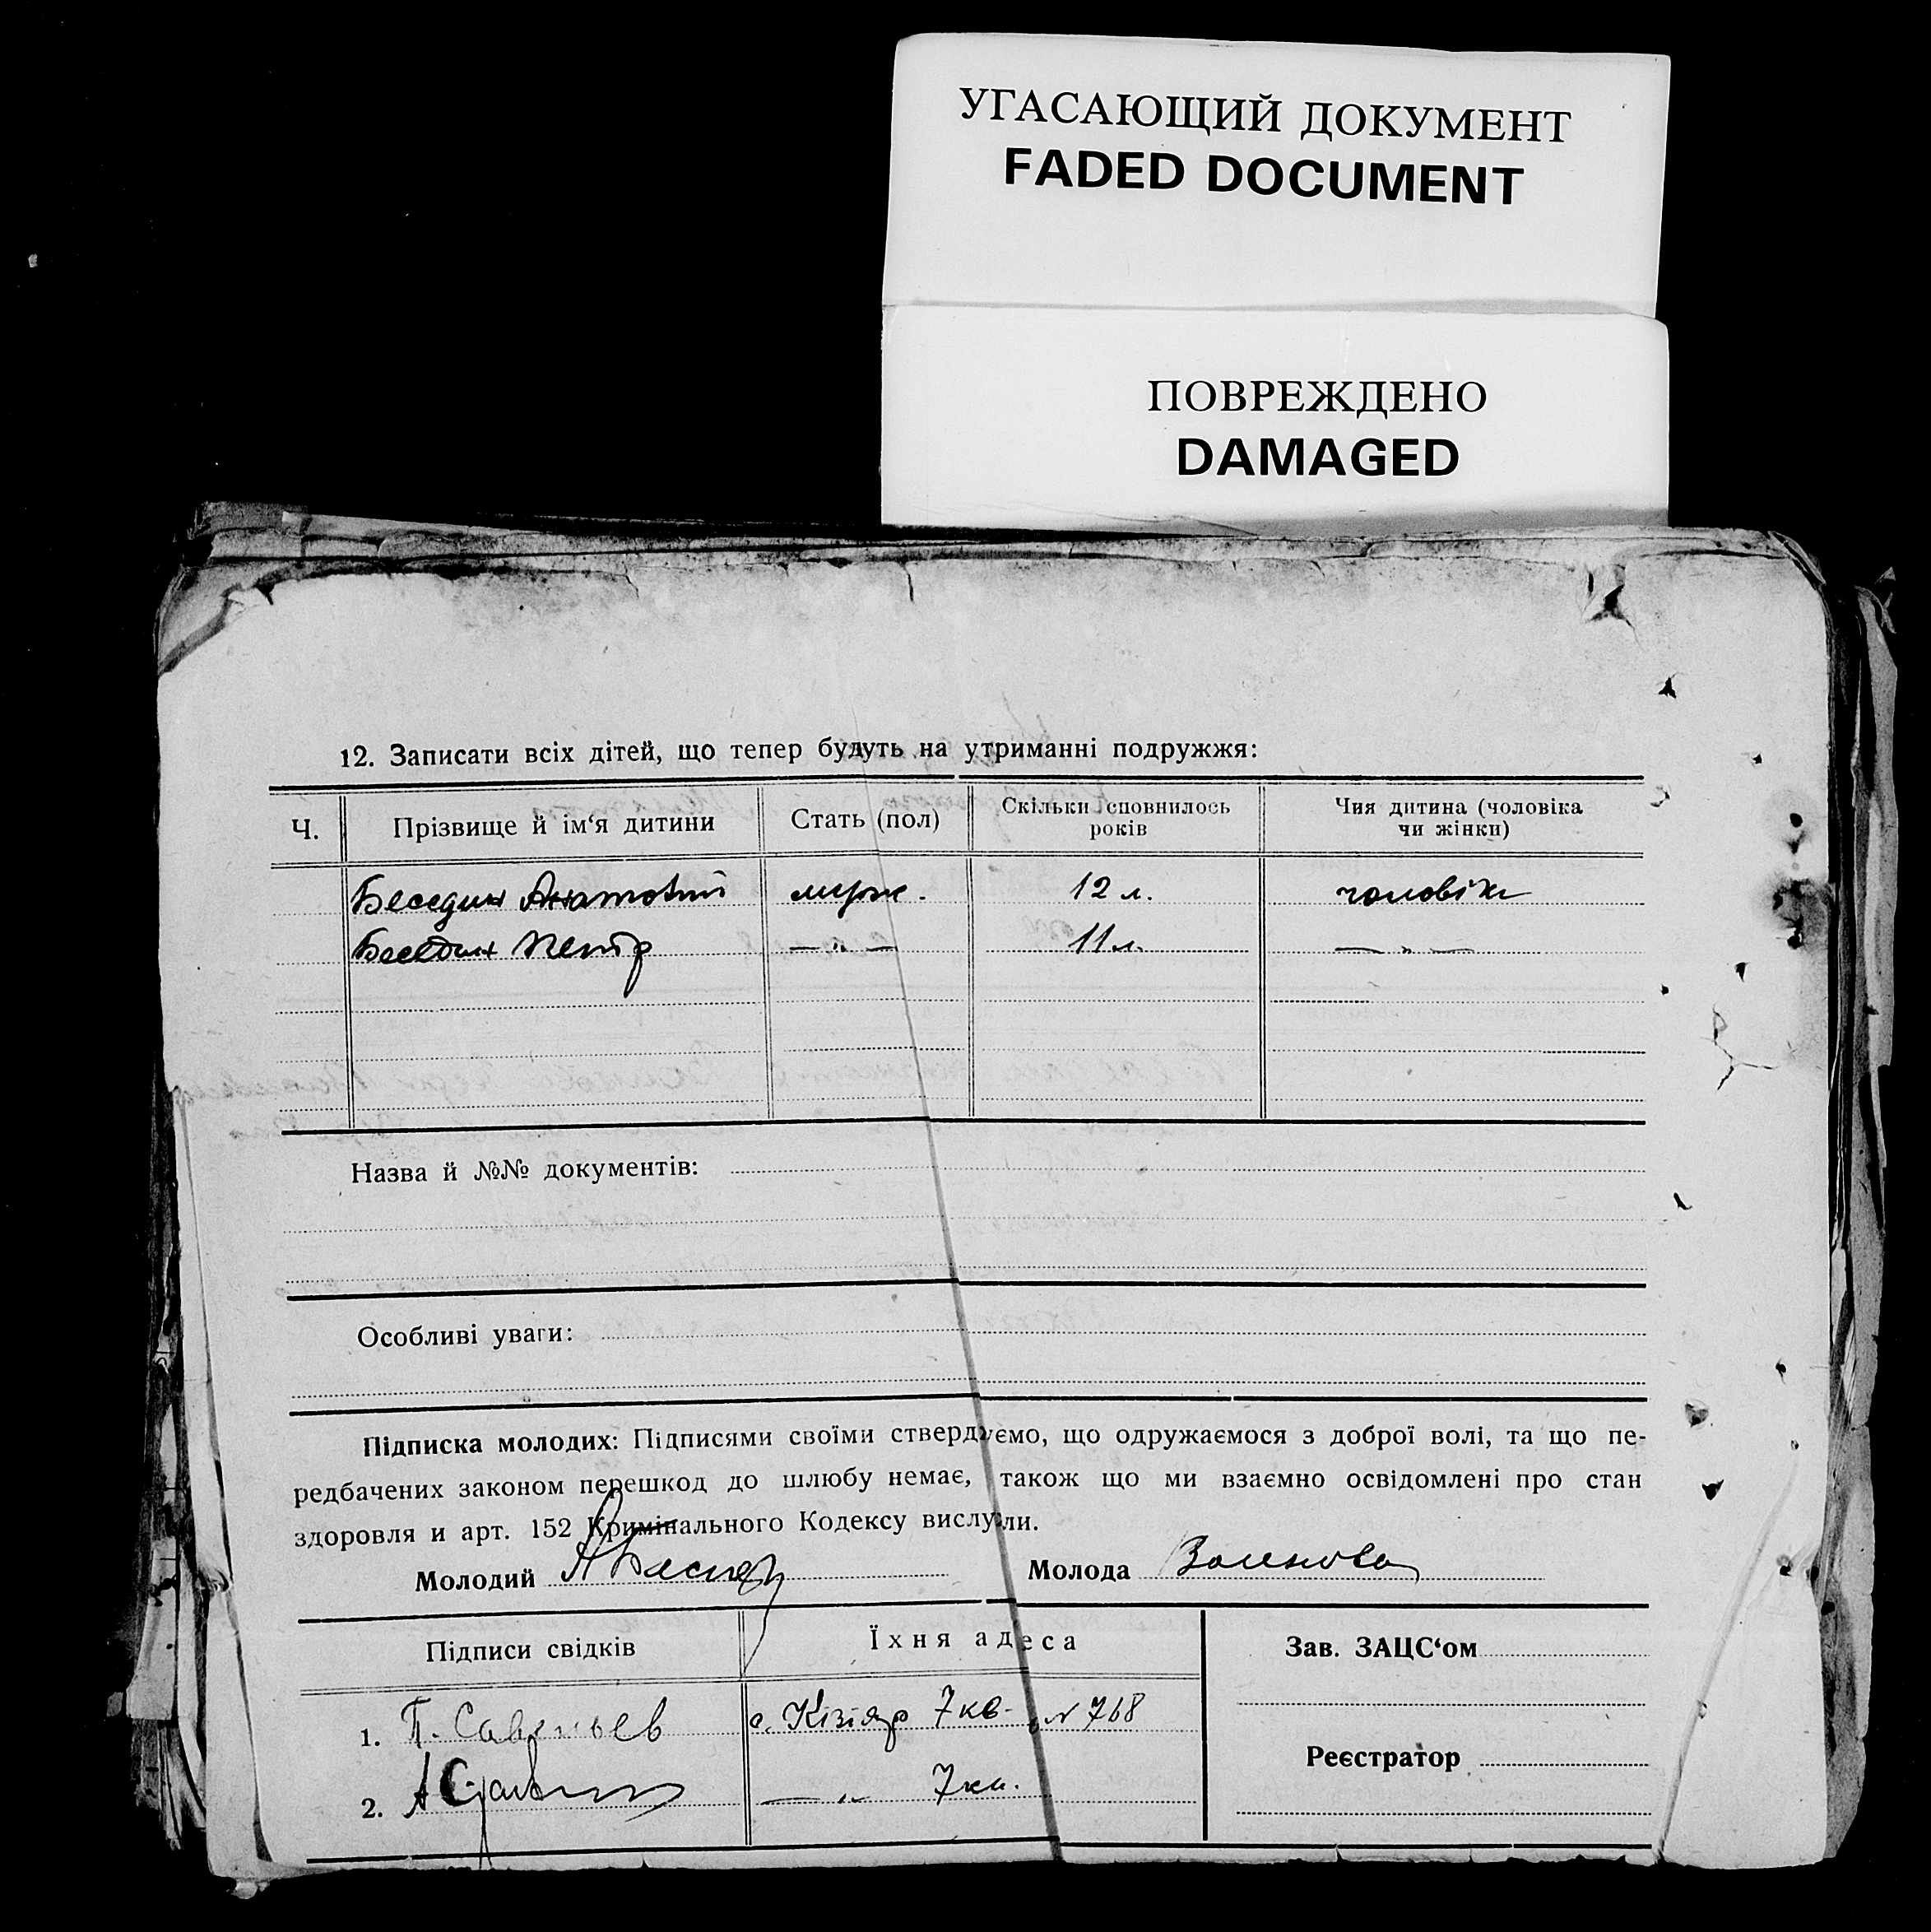 УГАСАЮЩИЙ ДОКУМЕНТ
FADED DOCUMENT
ПОВРЕЖДЕНО
DAMAGED
12. Записати всіх дітей, що тепер будуть на утриманні подружжя:
Ч. Прізвище й ім‘я дитини Стать (пол) Скільки сповнилось років Чия дитина (чоловіка чи жінки)
Беседин Анатолий муж. 12 л. чоловіка
Беседин Петр — „ — 11 л. — „ —
Назва й №№ документів:
Особливі уваги:
Підписка молодих: Підписями своїми стверджуємо, що одружаємося з доброї волі, та що пе-
редбачених законом перешкод до шлюбу немає, також що ми взаємно освідомлені про стан
здоровля и арт. 152 Кримінального Кодексу вислухали.
Молодий Молода
Підписи свідків Їхня адеса Зав. ЗАЦС‘ом
1. П. Савельев с. Кізіяр 7 кв. № 768
Реєстратор
2. — „ 7 кв.